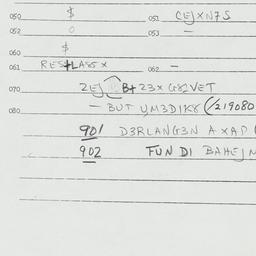 050 $ 051 CEJXN7S
052 0 053 —
060 $
061 RES+LA85X 062 —
070 2EJ B+23X G82VET
— BUT YM3DIK8 (/219080
080
901 D3RLANG3N AXAP
902 FUN DI BAHEJM